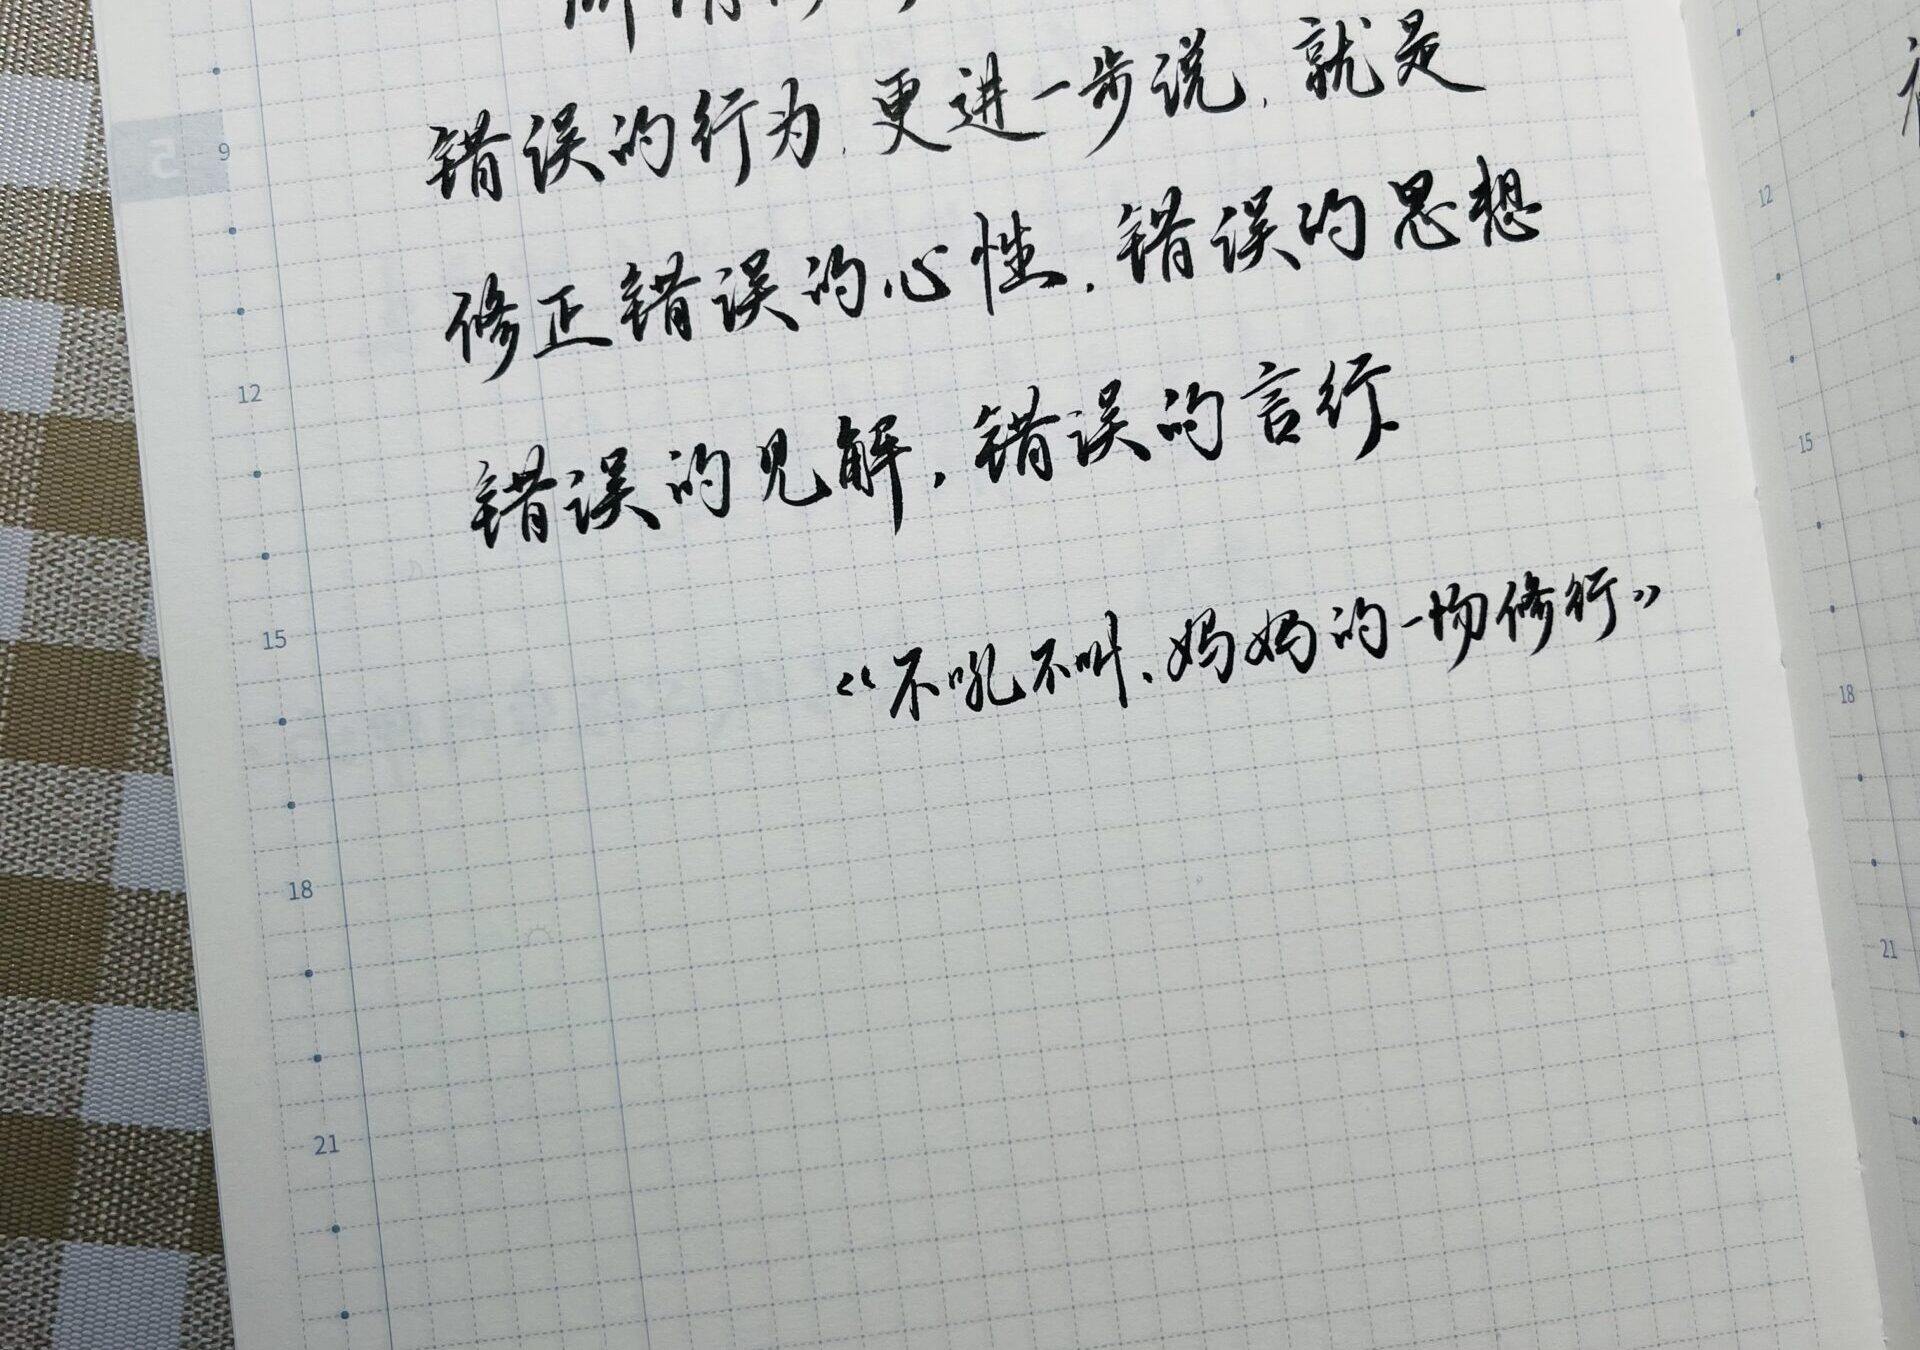 错误的行为，更进一步说，就是
修正错误的心性，错误的思想
错误的见解，错误的言行
《不吼不叫、妈妈的一场修行》
9
12
15
18
21
12
15
18
21